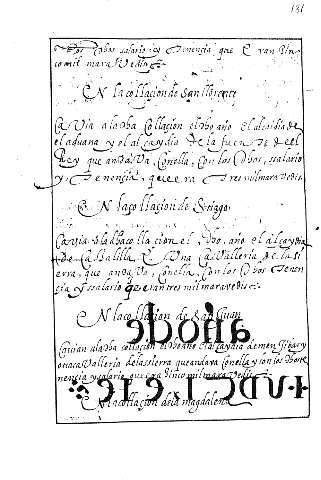 131
Por dhos salario y tenencia que Eran Un
co mil maravedis
EN la collacion de san llorente
Cavia a la dha Collacion el dho año el alcaidia de
el aduana y el alcaydia de la fuente de el
Rey que andava, Conella, Con los dhos, ssalario
y, tenencia, que era tres mil maravedis
EN la collacion de Santiago
Cavia a la dha collacion el dho, año el alcaydia
de Castalilla E Una Cavalleria de la sie
rra, que andava, Conella, Con los dhos tenen
cia y ssalario que eran tres mil maravedis
EN la collacion de San Juan
Cavian a la dha collacion el dho año el alcaydia de
y otra Cavalleria de la sierra que andava Conella y con los dhos te
nencia y salario que era cinco mil maravedis
EN la collacion de la magdalena